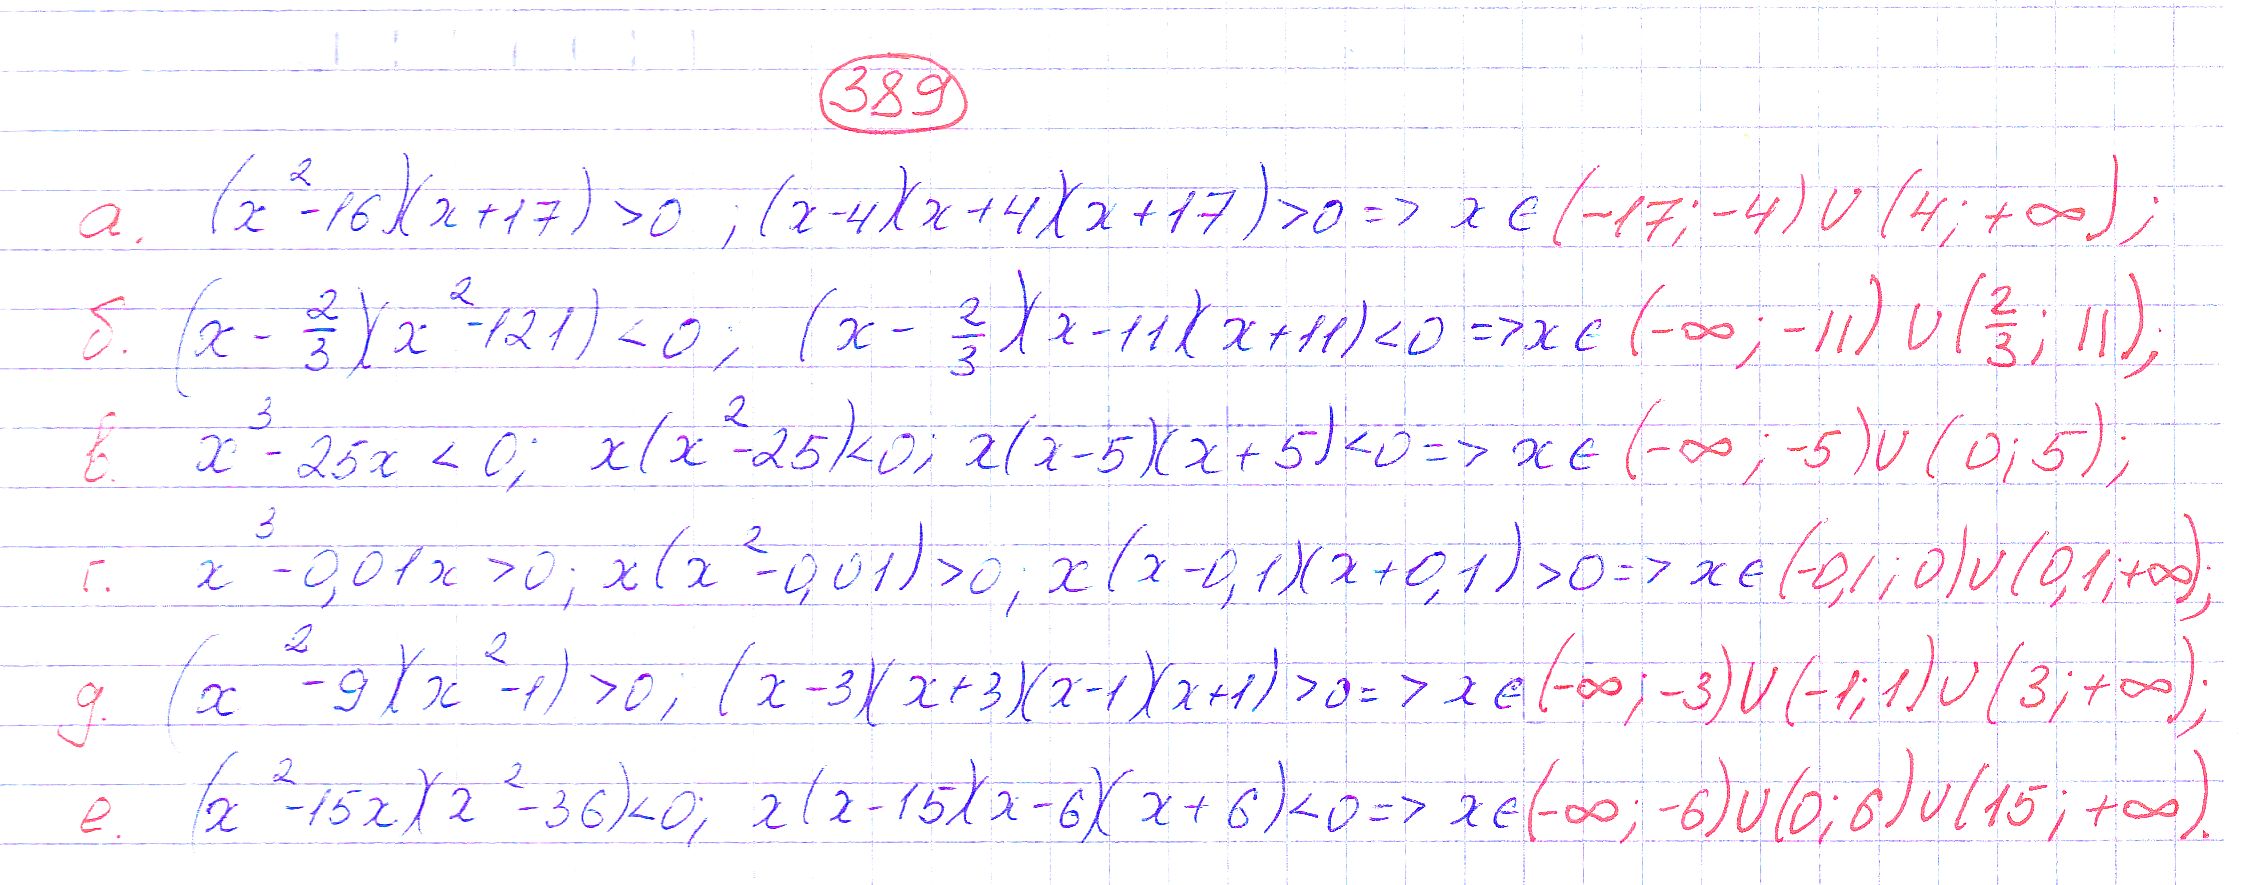 389
а. (x²-16)(x+17)>0 ; (x-4)(x+4)(x+17)>0 => x ∈ (-17; -4) ∪ (4; +∞);
б. (x - 2/3)(x²-121)<0; (x - 2/3)(x-11)(x+11)<0 => x ∈ (-∞; -11) ∪ (2/3; 11);
в. x³-25x<0; x(x²-25)<0; x(x-5)(x+5)<0 => x ∈ (-∞; -5) ∪ (0; 5);
г. x³-0,01x>0; x(x²-0,01)>0; x(x-0,1)(x+0,1)>0 => x ∈ (-0,1; 0) ∪ (0,1; +∞);
д. (x²-9)(x²-1)>0; (x-3)(x+3)(x-1)(x+1)>0 => x ∈ (-∞; -3) ∪ (-1; 1) ∪ (3; +∞);
е. (x²-15x)(x²-36)<0; x(x-15)(x-6)(x+6)<0 => x ∈ (-∞; -6) ∪ (0; 6) ∪ (15; +∞).